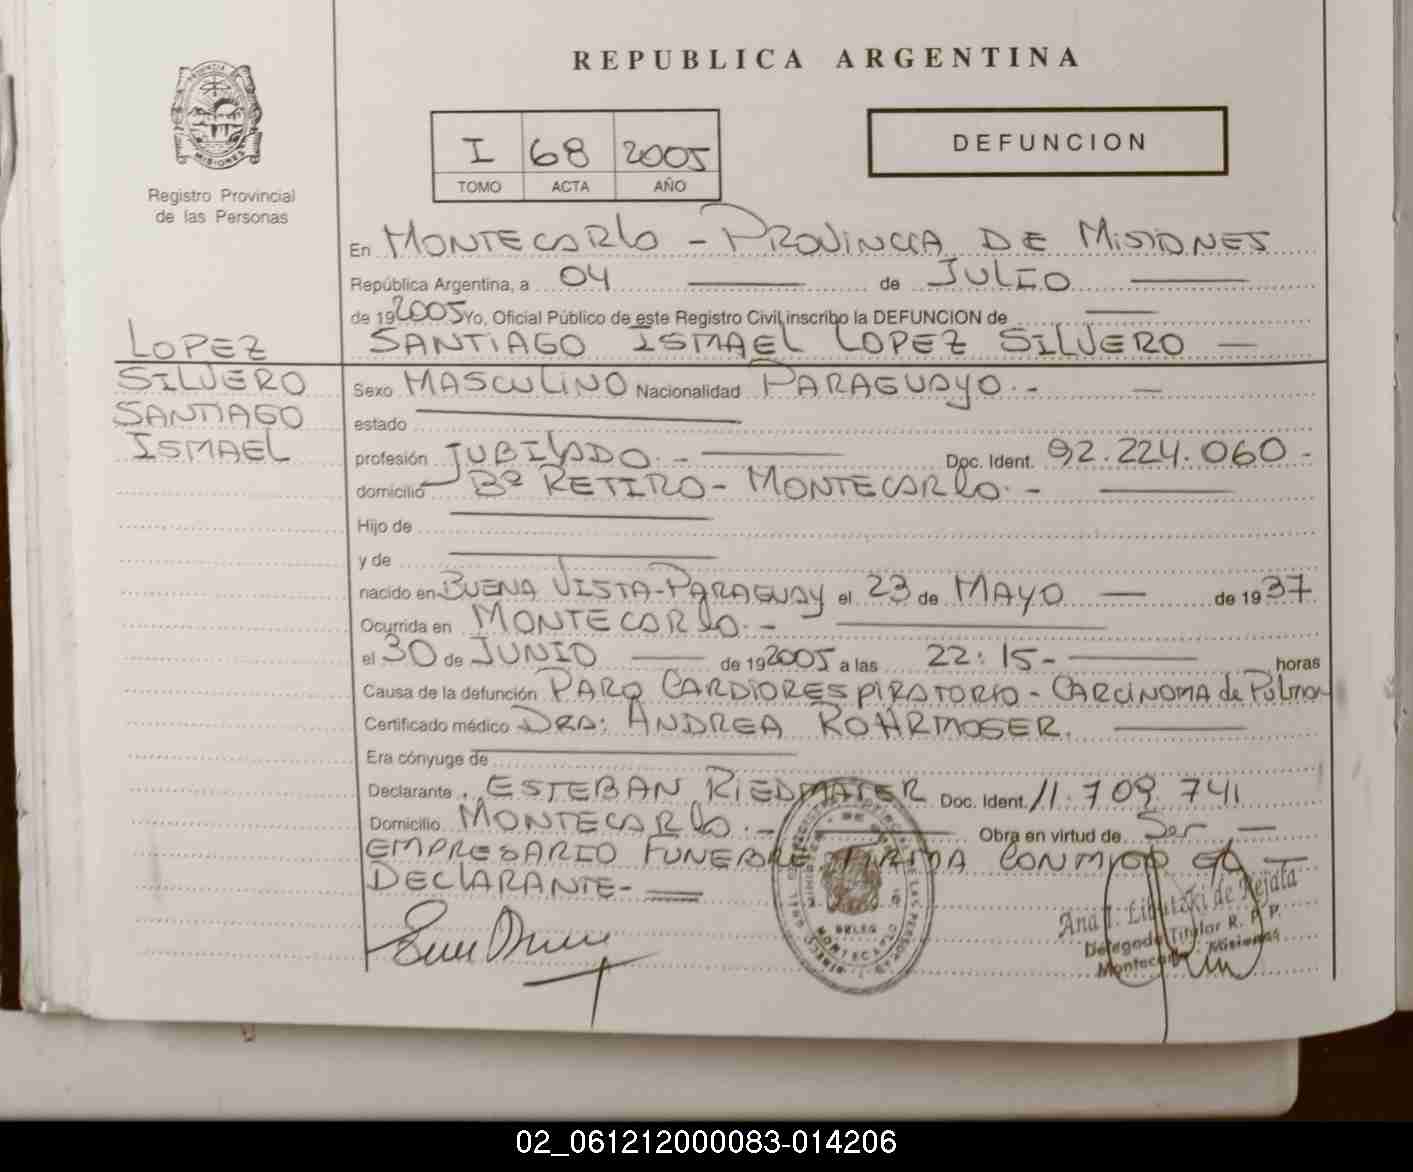 REPUBLICA ARGENTINA
I 68 2005
TOMO ACTA AÑO
DEFUNCION
Registro Provincial
de las Personas
En MONTECARLO - PROVINCIA DE MISIONES
República Argentina, a 04 de JULIO
de 19 2005 Yo, Oficial Público de este Registro Civil inscribo la DEFUNCION de
SANTIAGO ISMAEL LOPEZ SILVERO
LOPEZ
SILVERO
SANTIAGO
ISMAEL
Sexo MASCULINO Nacionalidad PARAGUAYO.-
estado
profesión JUBILADO.- Doc. Ident. 92.224.060-
domicilio Bº RETIRO - MONTECARLO.-
Hijo de
y de
nacido en BUENA VISTA-PARAGUAY el 23 de MAYO de 19 37
Ocurrida en MONTECARLO.-
el 30 de JUNIO de 19 2005 a las 22:15- horas
Causa de la defunción PARO CARDIORESPIRATORIO - CARCINOMA de Pulmon
Certificado médico DRA: ANDREA ROHRMOSER.
Era cónyuge de
Declarante ESTEBAN RIEDMAIER Doc. Ident. 11.709.741
Domicilio MONTECARLO.- Obra en virtud de Ser
EMPRESARIO FUNEBRE FIRMA CONMIGO EL
DECLARANTE-
MONTECARLO
Ana I. de Tejata
Delegada Titular R. P. P.
Montecarlo Misiones
02_061212000083-014206